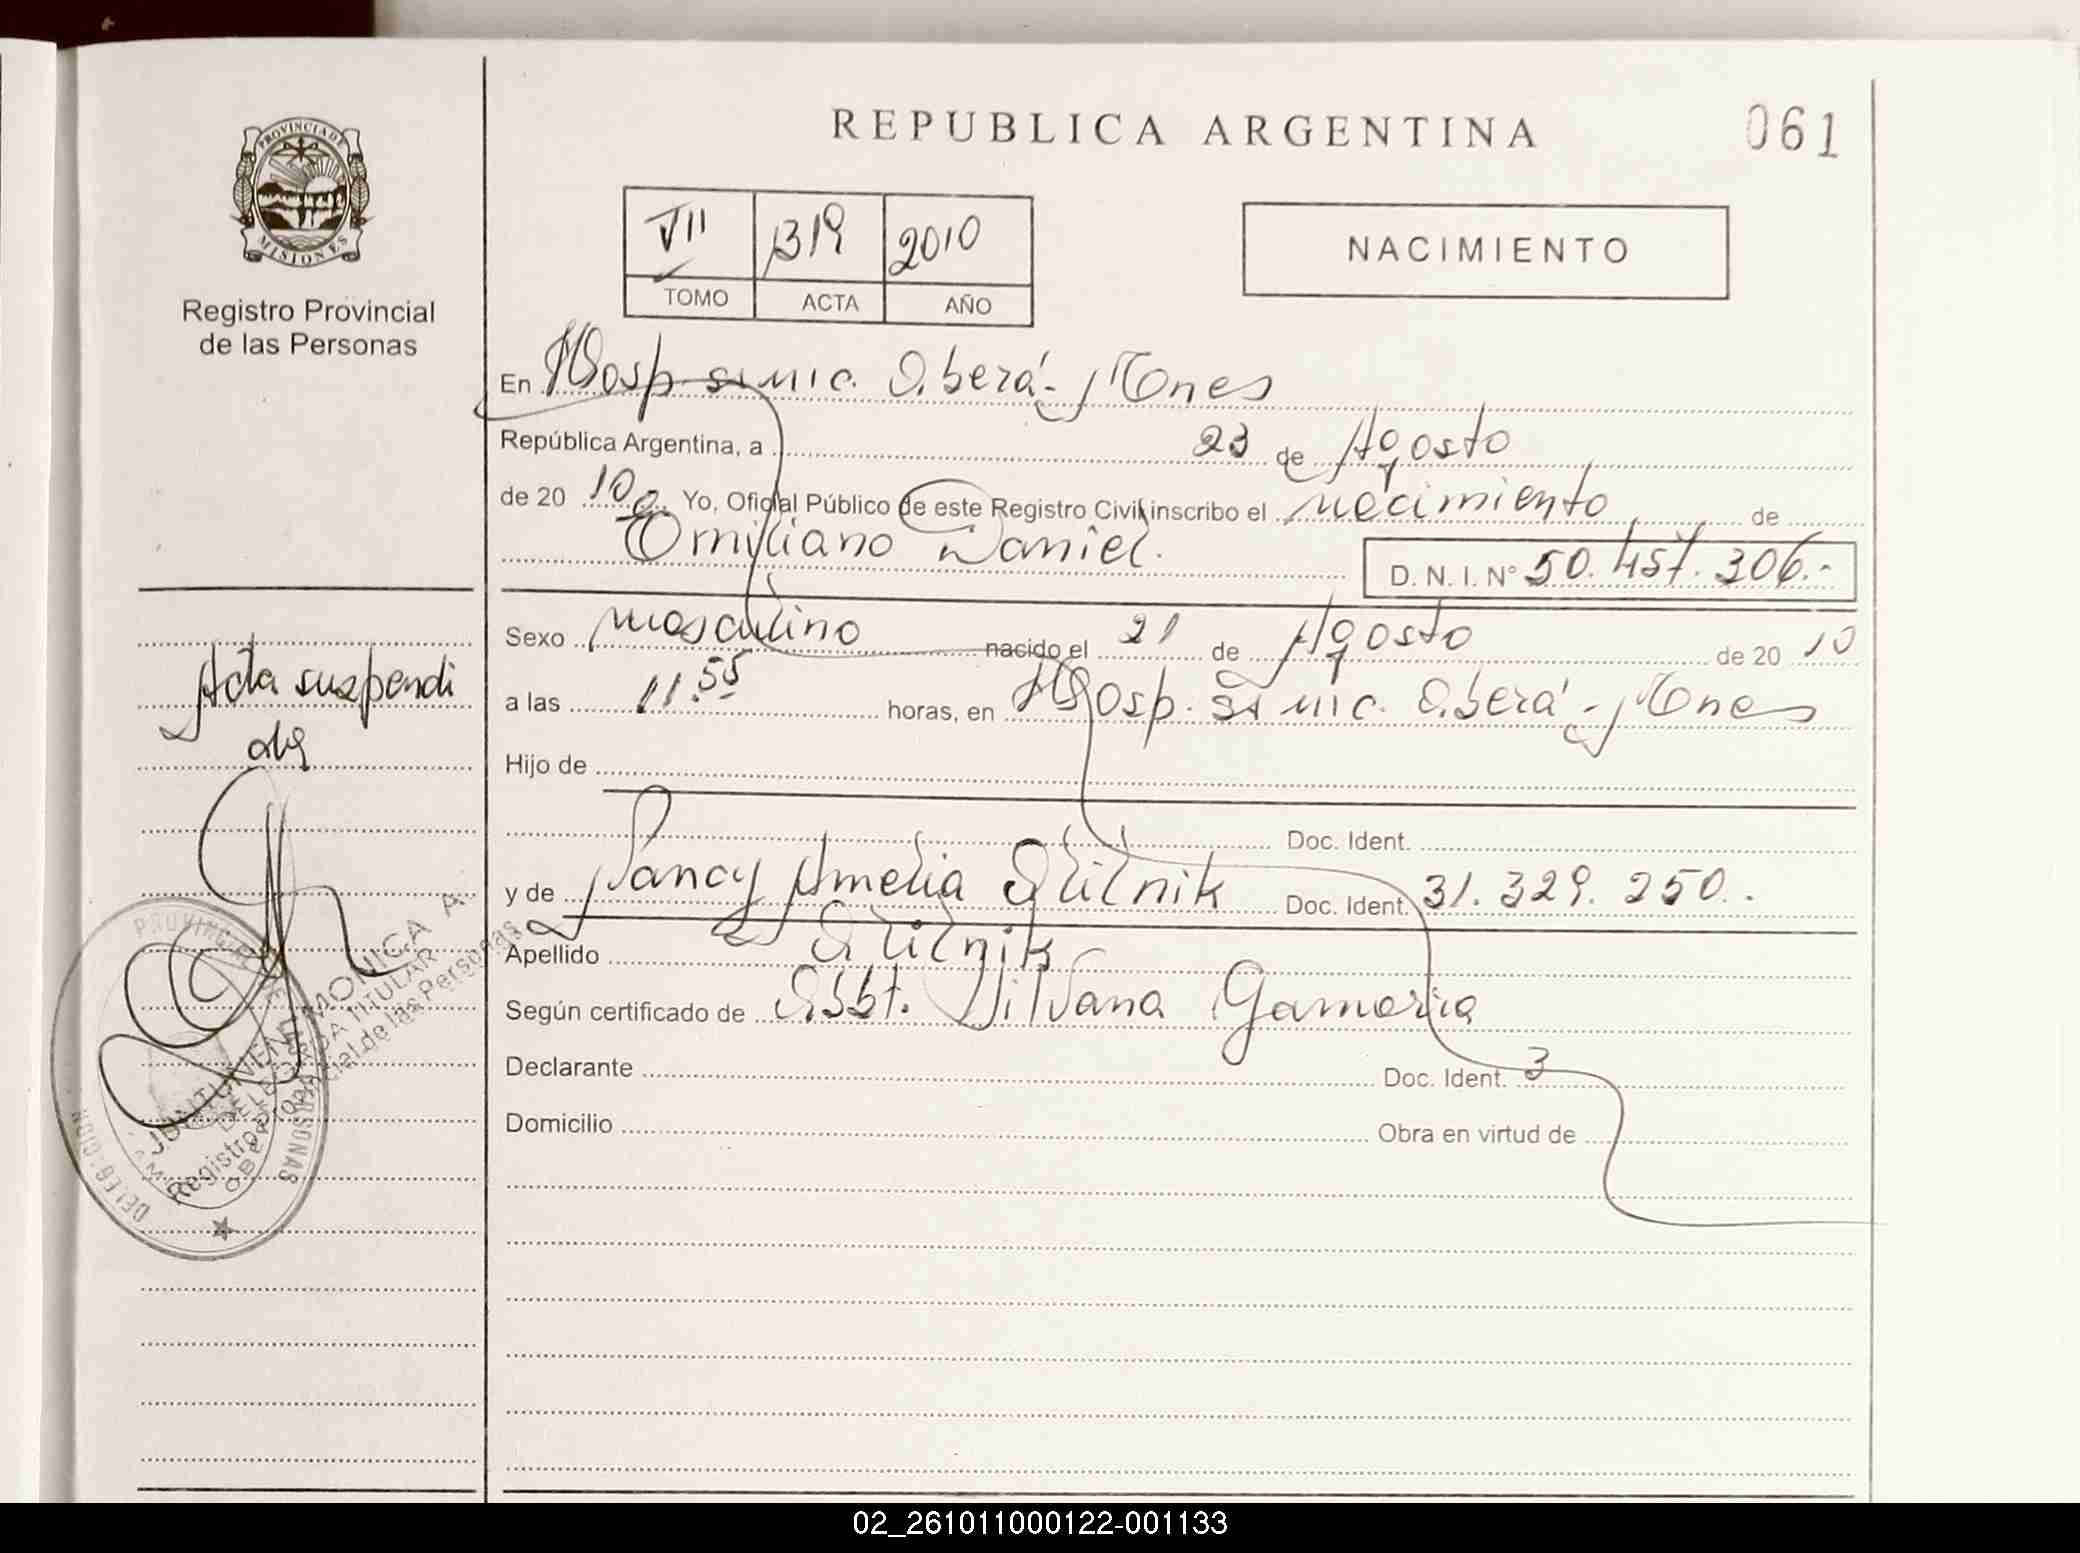 REPUBLICA ARGENTINA
061
PROVINCIA DE
MISIONES
Registro Provincial
de las Personas
VII 1319 2010
TOMO ACTA AÑO
NACIMIENTO
En Hosp. Oberá - Mnes
República Argentina, a 23 de Agosto
de 20 10 Yo, Oficial Público de este Registro Civil inscribo el nacimiento de
Emiliano Daniel. D. N. I. N° 50.457.306.-
Sexo masculino nacido el 21 de Agosto de 20 10
a las 11.55 horas, en Hosp. Oberá - Mnes
Hijo de
Doc. Ident.
y de Nancy Amelia Doc. Ident. 31.329.250.-
Apellido
Según certificado de Obst. Silvana
Declarante Doc. Ident. 3
Domicilio Obra en virtud de
Acta suspendi
da
MONICA A.
DELEGADA TITULAR
Registro Provincial de las Personas
OBERA
02_261011000122-001133